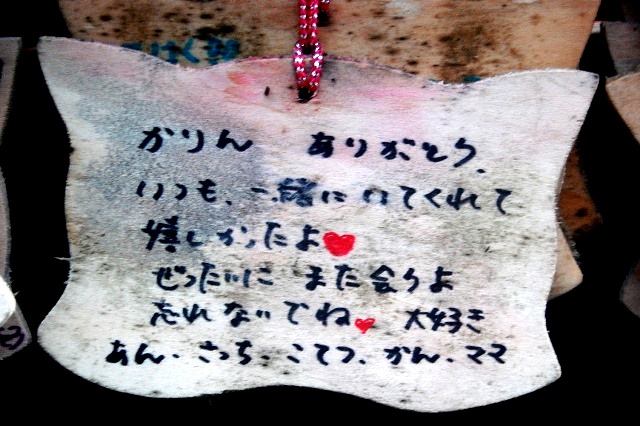 かりん ありがとう、
いつも、一緒にいてくれて
嬉しかったよ
ぜったいに また会うよ
忘れないでね 大好き
あん、さっち、こてつ、かん、ママ